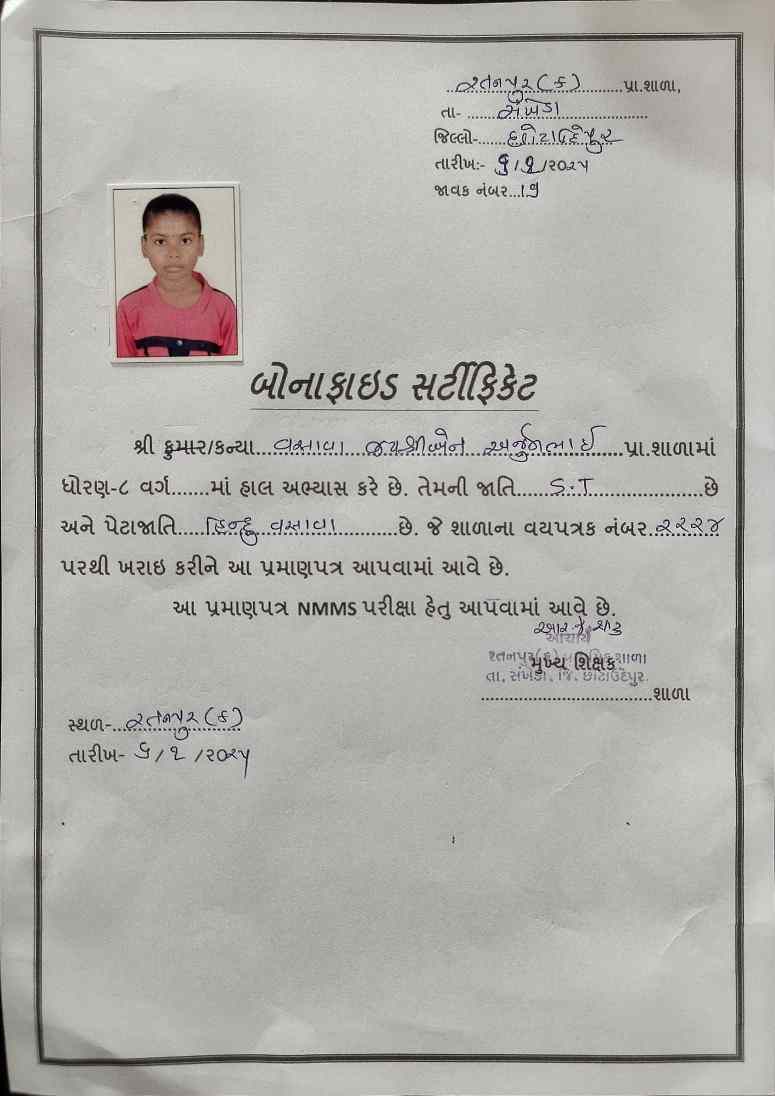 રતનપુર(ક) પ્રા.શાળા,
તા- સંખેડા
જિલ્લો- છોટાઉદેપુર
તારીખ:- /૧/૨૦૨૫
જાવક નંબર...૧૭
બોનાફાઇડ સર્ટીફિકેટ
શ્રી કુમાર/કન્યા...વસાવા જયશ્રીબેન અર્જુનભાઈ...પ્રા.શાળામાં
ધોરણ-૮ વર્ગ.......માં હાલ અભ્યાસ કરે છે. તેમની જાતિ.....S.T......છે
અને પેટાજાતિ.....હિન્દુ વસાવા.....છે. જે શાળાના વયપત્રક નંબર..૨૨૨૪
પરથી ખરાઇ કરીને આ પ્રમાણપત્ર આપવામાં આવે છે.
આ પ્રમાણપત્ર NMMS પરીક્ષા હેતુ આપવામાં આવે છે.
આચાર્ય
રતનપુર(ક) શાળા
મુખ્ય શિક્ષક
તા, સંખેડા, જિ. છોટાઉદેપુર.
શાળા
સ્થળ-...રતનપુર(ક)
તારીખ- /૧/૨૦૨૫